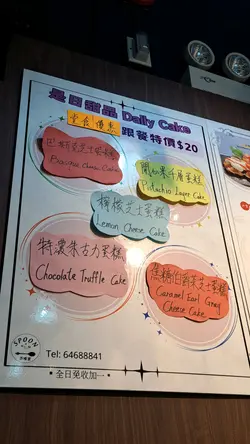 是日甜品 Daily Cake
堂食優惠 跟餐特價$20
巴斯克芝士蛋糕
Basque Cheese Cake
開心果千層蛋糕
Pistachio Layer Cake
檸檬芝士蛋糕
Lemon Cheese Cake
特濃朱古力蛋糕
Chocolate Truffle Cake
焦糖伯爵茶芝士蛋糕
Caramel Earl Grey
Cheese Cake
SPOON
Tel: 64688841
•全日免收加一•